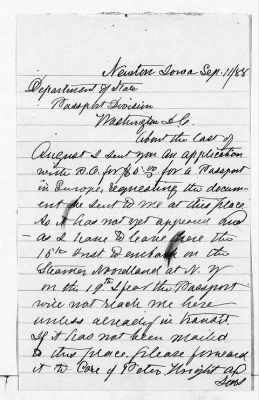 Newton Iowa Sep. 11/88
Department of State
Passport Division
Washington D.C.
About the last of
August I sent you an application
with P.O. for $5.00 for a Passport
in Europe, requesting the docum-
ent be sent to me at this place
As it has not yet appeared and
as I have to leave here the
15th inst to embark on the
Steamer Noordland at N.Y
on the 19th I fear the Passport
will not reach me here
unless already in transit.
If it has not been mailed
to this place, please forward
it to Care of Peter Wright &
Sons